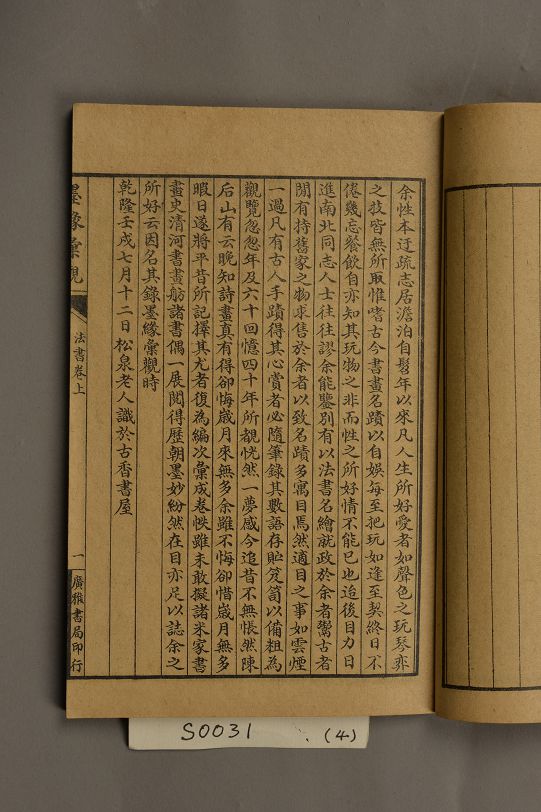 余性本迂疏志居澹泊自髫年以來凡人生所好愛者如聲色之玩琴弈
之技皆無所取惟嗜古今書畫名蹟以自娛每至把玩如逢至契終日不
倦幾忘餐飲自亦知其玩物之非而性之所好情不能已也迨後目力日
進南北同志人士往往謬余能鑒別有以法書名繪就政於余者鬻古者
閒有持舊家之物求售於余者以致名蹟多寓目焉然適目之事如雲煙
一過凡有古人手蹟得其心賞者必隨筆錄其數語存貯笈笥以備粗為
觀覽忽忽年及六十回憶四十年所覩恍然一夢感今追昔不無悵然陳
后山有云晚知詩畫真有得卻悔歲月來無多余雖不悔卻惜歲月無多
暇日遂將平昔所記擇其尤者復為編次彙成卷帙雖未敢擬諸米家書
畫史清河書畫舫諸書偶一展閱得歷朝墨妙紛然在目亦足以誌余之
所好云因名其錄墨緣彙觀時
乾隆壬戌七月十二日松泉老人識於古香書屋
墨緣彙觀
法書卷上
一
廣雅書局印行
S0031 (4)